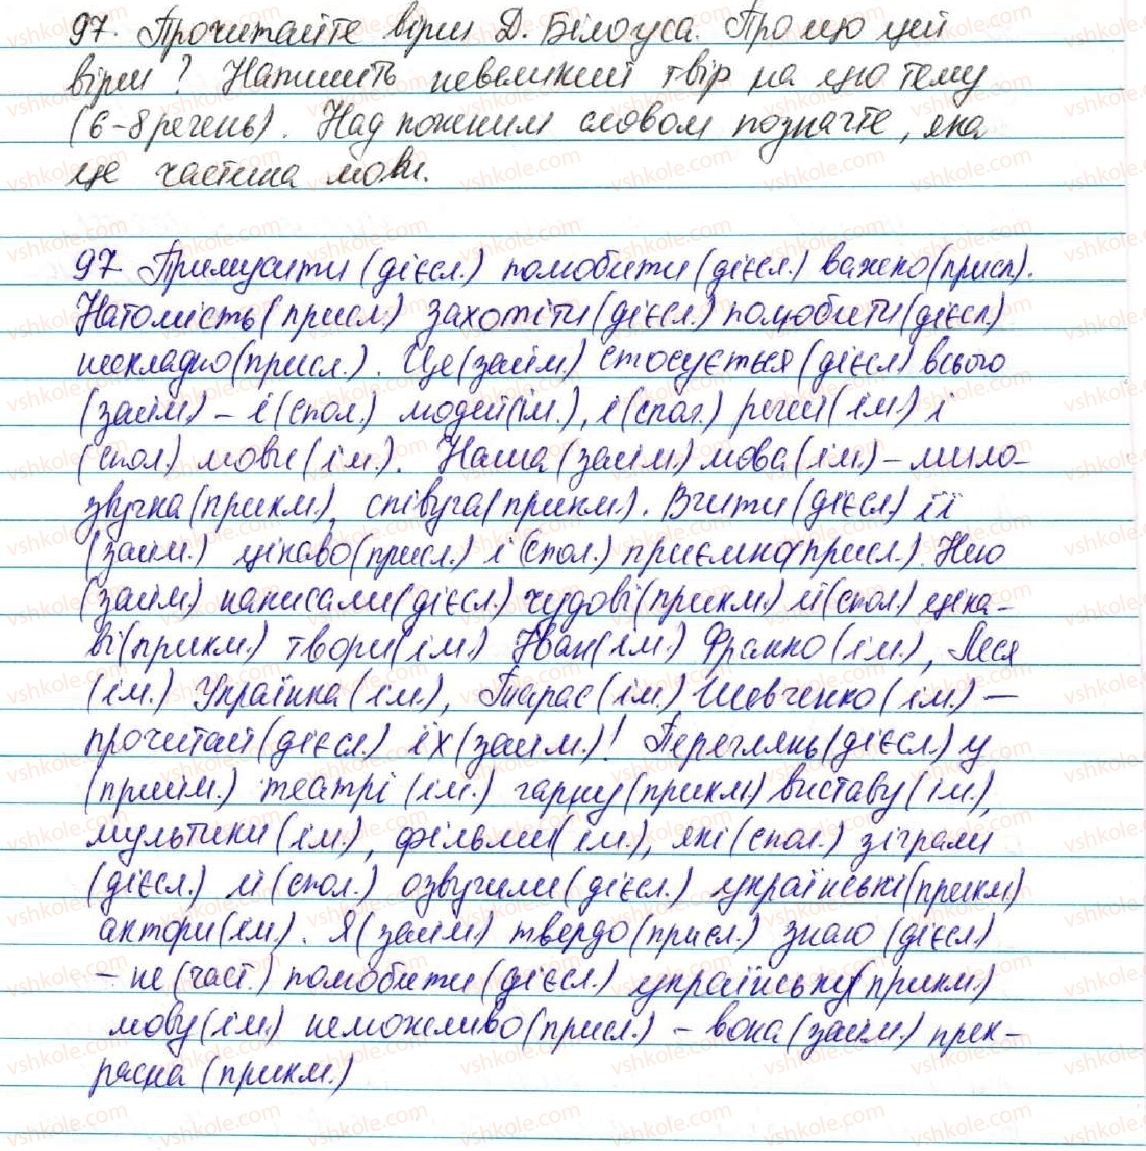 97. Прочитайте вірш Д. Білоуса. Про що цей
вірш? Напишіть невеликий твір на цю тему
(6-8 речень). Над кожним словом позначте, яка
це частина мови.
97 Примусити (дієсл.) полюбити (дієсл.) важко (присл).
Натомість (присл.) захотіти (дієсл.) полюбити (дієсл.)
нескладно (присл.). Це (займ.) стосується (дієсл) всього
(займ.) – і (спол.) людей (ім.), і (спол.) речей (ім.) і
(спол.) мови (ім.). Наша (займ.) мова (ім.) – мило-
звучна (прикм.), співуча (прикм.). Вчити (дієсл.) її
(займ.) цікаво (присл.) і (спол.) приємно (присл.). Нею
(займ.) написали (дієсл.) чудові (прикм.) й (спол.) ціка-
ві (прикм.) твори (ім.) Іван (ім.) Франко (ім.), Леся
(ім.) Українка (ім.), Тарас (ім.) Шевченко (ім.) –
прочитай (дієсл.) їх (займ.)! Переглянь (дієсл.) у
(прийм.) театрі (ім.) гарну (прикм.) виставу (ім.),
мультики (ім.), фільми (ім.), які (спол.) зіграли
(дієсл.) й (спол.) озвучили (дієсл.) українські (прикм)
актори (ім.). Я (займ) твердо (присл.) знаю (дієсл.)
– не (част.) полюбити (дієсл.) українську (прикм.)
мову (ім.) неможливо (присл.) – вона (займ.) прек-
расна (прикм.)